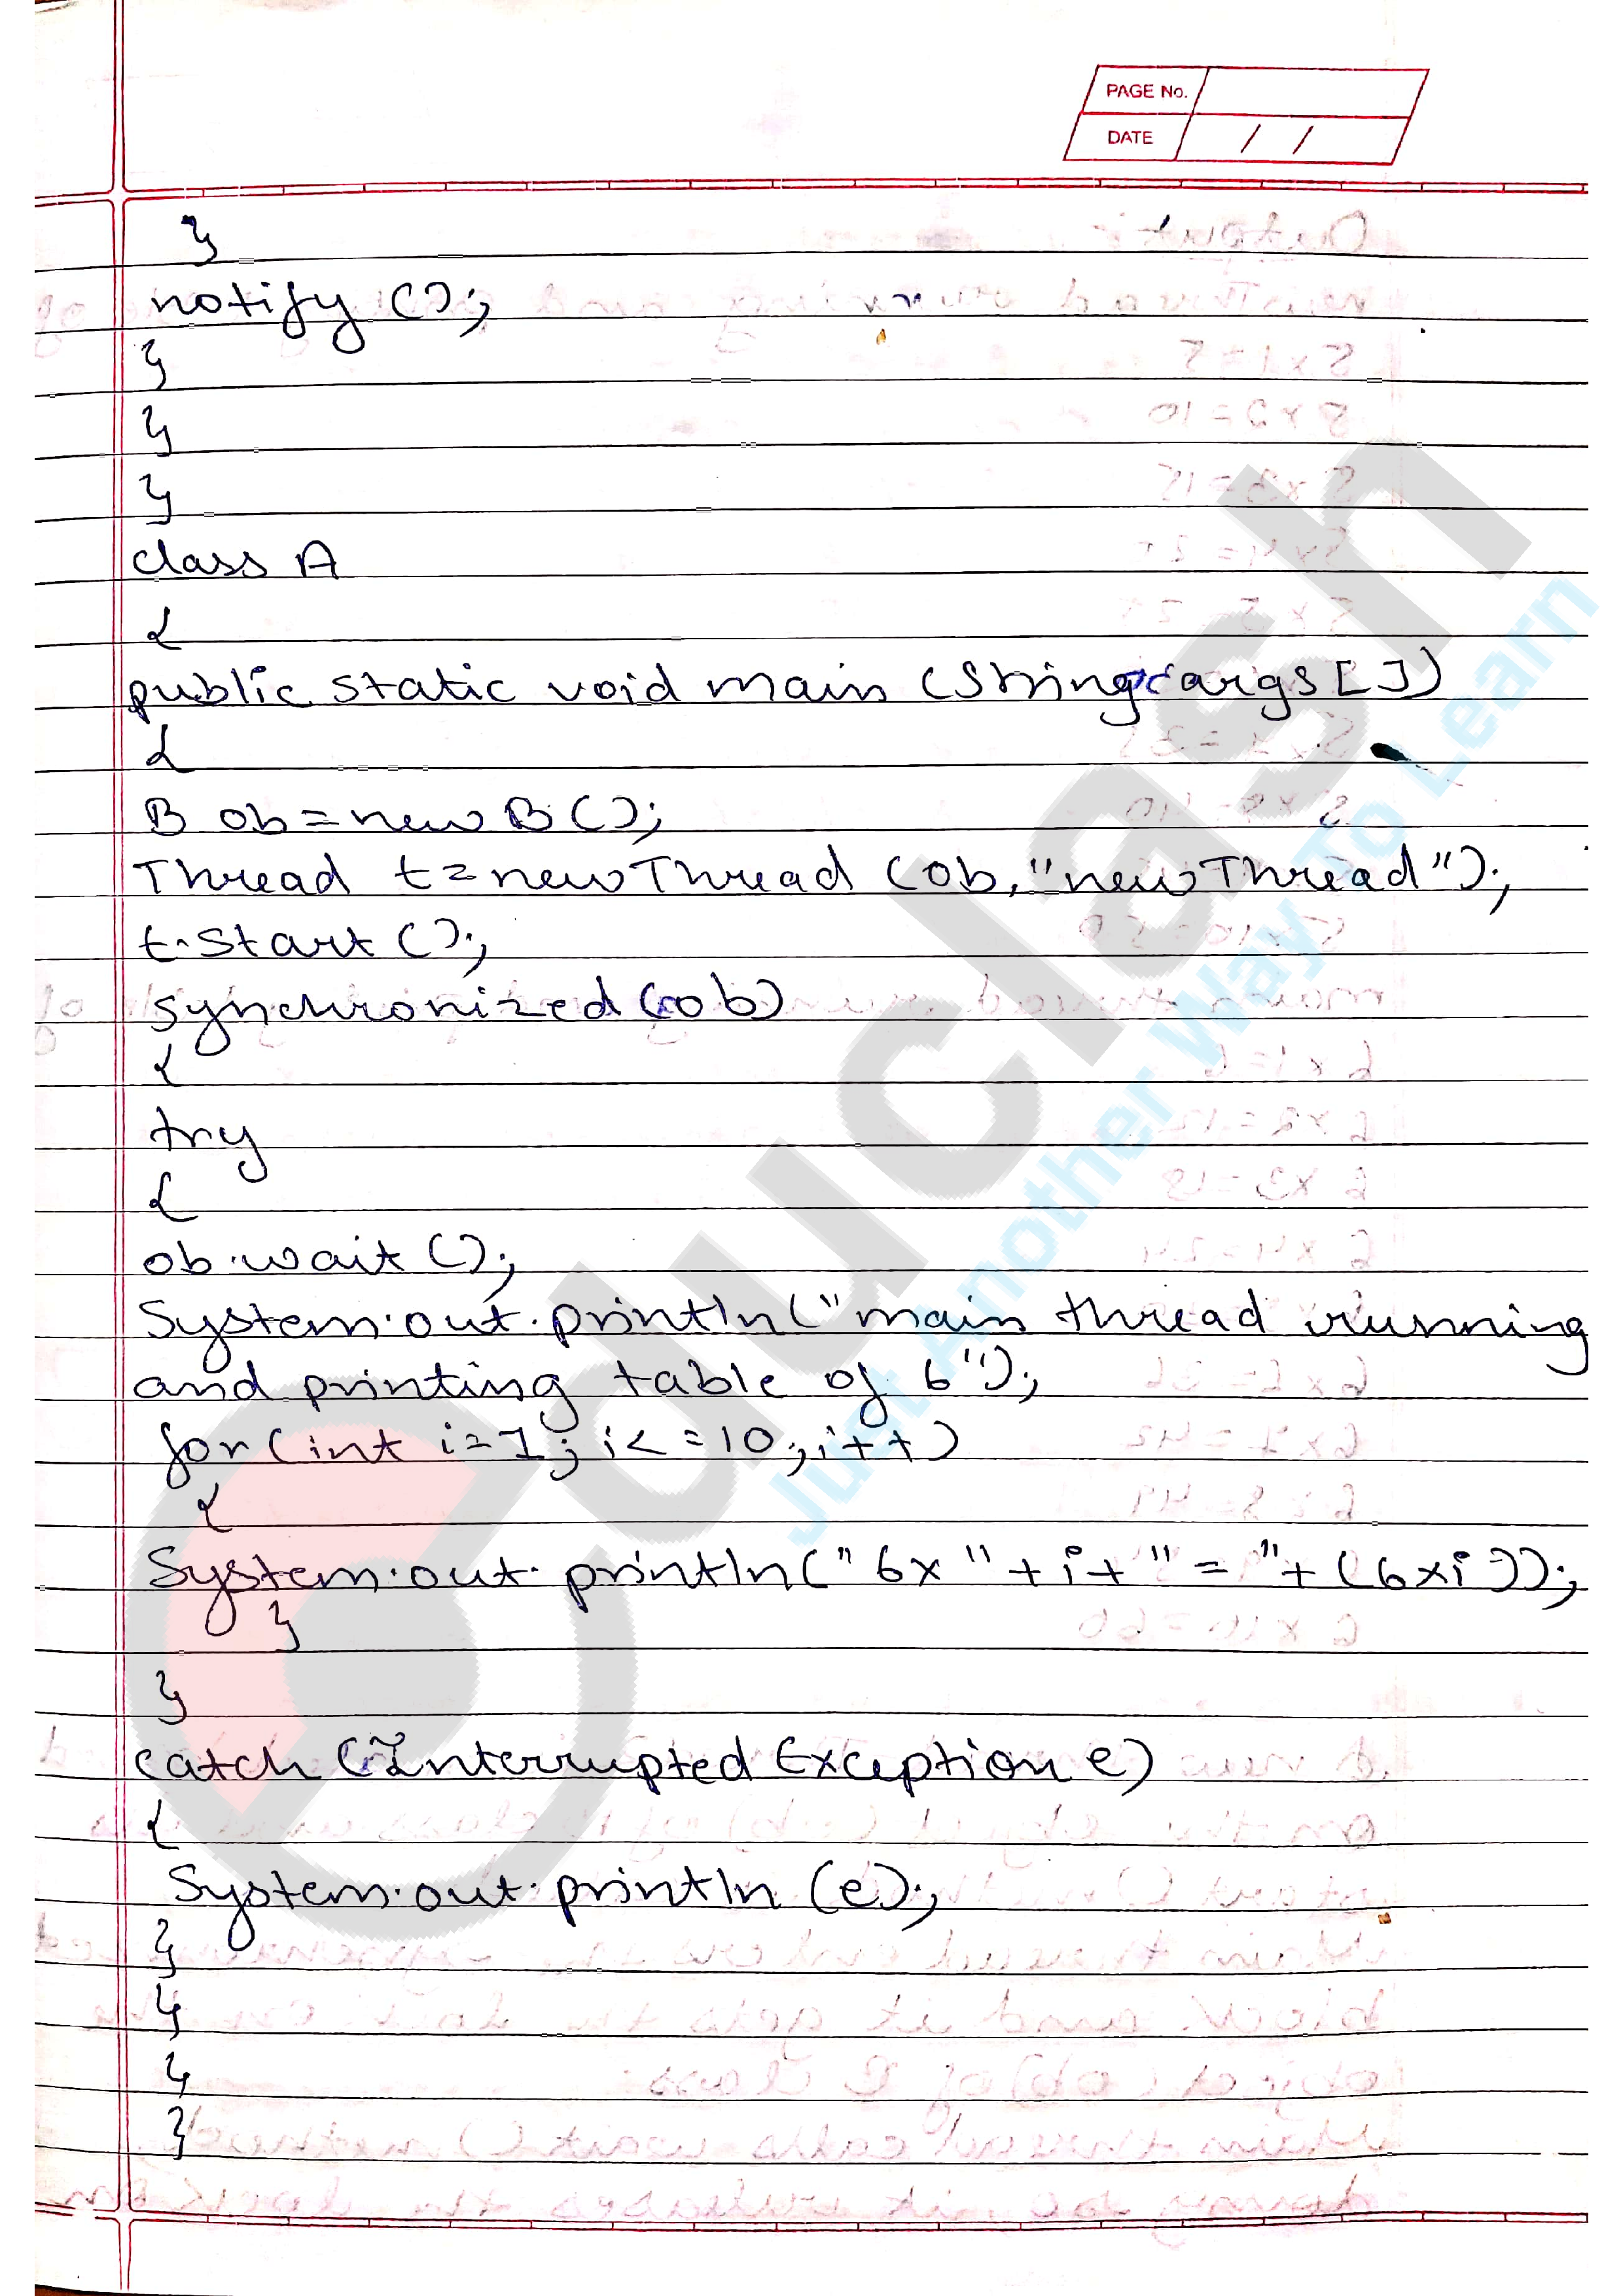 PAGE No.
DATE / /
}
notify ();
}
}
}
class A
{
public static void main (String args[])
{
B ob = new B ();
Thread t = new Thread (ob, "new Thread");
t.start ();
synchronized (ob)
{
try
{
ob.wait ();
System.out.println("main thread running
and printing table of 6");
for (int i=1; i<=10; i++)
{
System.out.println("6x"+i+"="+(6xi));
}
}
catch (Interrupted Exception e)
{
System.out.println (e);
}
}
}
}
educlash
Just Another Way To Learn